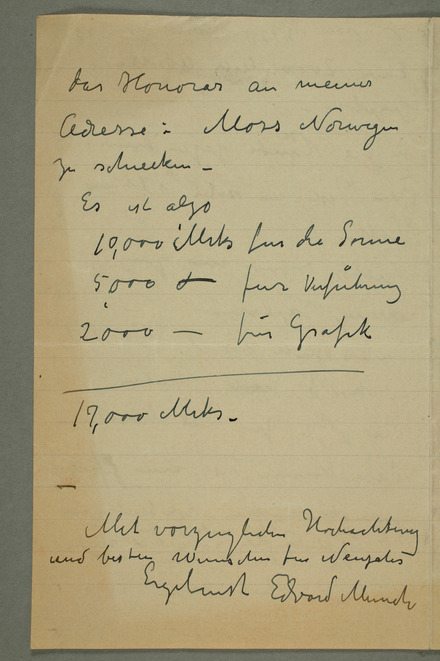 das Honorar an meine
Adresse: Moss Norwegen
zu schicken –
Es ist also
10,000 Mrks fur die Sonne
5,000 – fur Vefuhrung
2000 — für Grafik
17,000 Mrks.–
Mit vorzuglicher Hochachtung
und besten Wunschen fur Neujahr
Ergebenst Edvard Munch